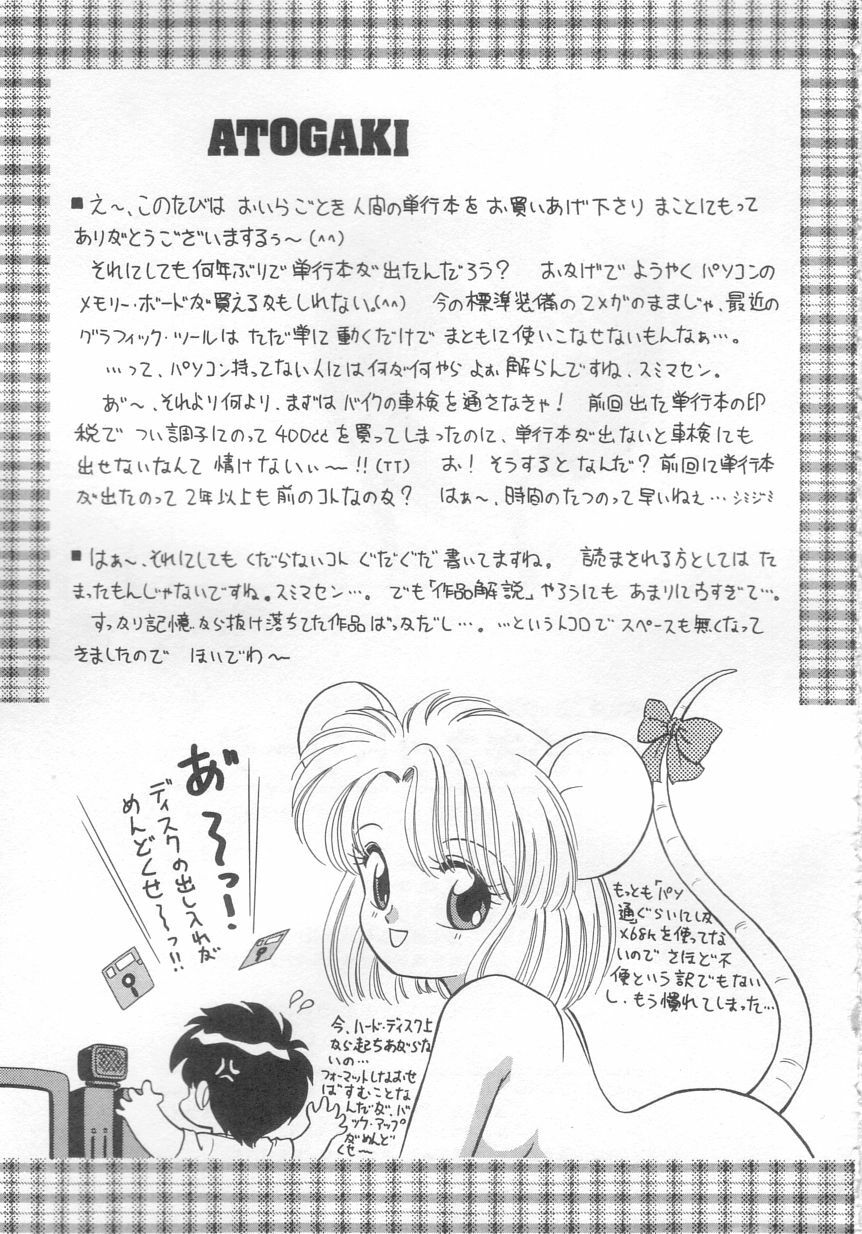 ATOGAKI
■え～、このたびは おいらごとき人間の単行本を お買いあげ下さり まことにもって
ありがとうございまするぅ～(^^)
それにしても何年ぶりで単行本が出たんだろう? おかげで ようやく パソコンの
メモリー・ボードが買えるかもしれない。(^^) 今の標準装備の2メガのままじゃ、最近の
グラフィック・ツールは ただ単に 動くだけで まともに使いこなせないもんなぁ…。
…って、パソコン持ってない人には何が何やら よぉ解らんですね、スミマセン。
あ゛～、それより何より、まずは バイクの車検を通さなきゃ! 前回出た単行本の印
税で つい調子にのって 400ccを買ってしまったのに、単行本が出ないと車検にも
出せないなんて 情けないぃ～!!(TT) お! そうすると なんだ? 前回に単行本
が出たのって 2年以上も前のコトなのか? はぁ～、時間のたつのって早いねぇ…シミジミ
■はぁ～、それにしても くだらないコト ぐだぐだ書いてますね。 読まされる方としては た
まったもんじゃないですね。スミマセン…。でも「作品解説」やろうにも あまりに古すぎて…。
すっかり記憶から抜け落ちてた作品ばっかだし…。…というトコロで スペースも無くなって
きましたので ほいでわ～
あ゛～っ!
ディスクの出し入れが
めんどくせ～っ!!
もっとも「パソ
通」ぐらいにしか
X68kを使ってな
いので さほど不
便という訳でもない
し、もう慣れてしまった…
今、ハード・ディスク上
から起ちあがらな
いの…
フォーマットしなおせ
ば すむことな
んだが、バ
ック・アップ
がめんど
くせ～